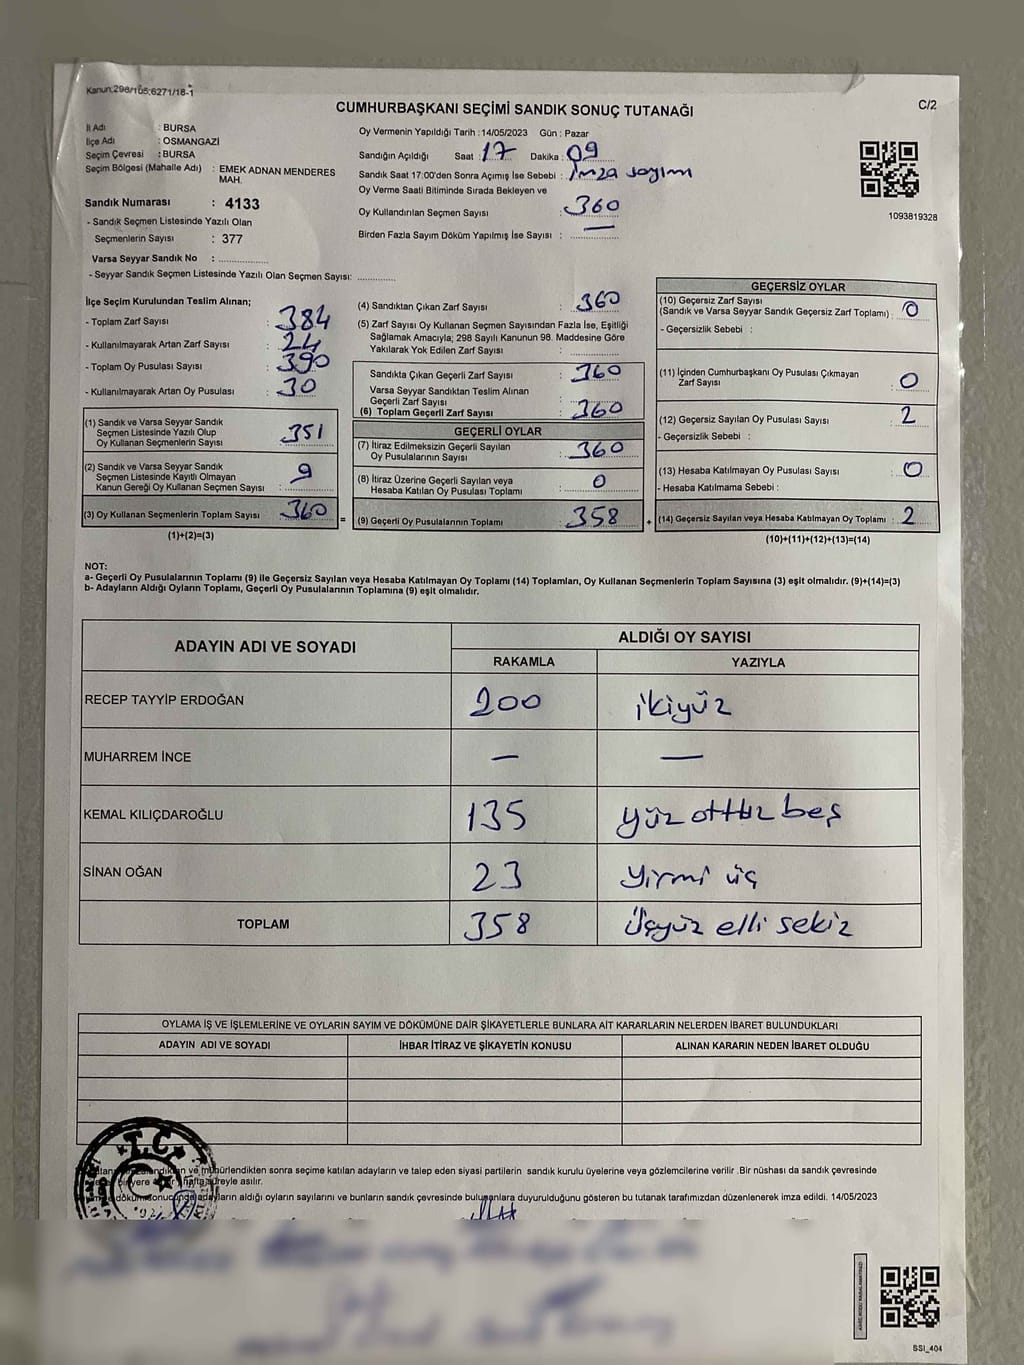 Kanun;298/105;6271/18-1
CUMHURBAŞKANI SEÇİMİ SANDIK SONUÇ TUTANAĞI
C/2
İl Adı : BURSA
İlçe Adı : OSMANGAZİ
Seçim Çevresi : BURSA
Seçim Bölgesi (Mahalle Adı) : EMEK ADNAN MENDERES
MAH.
Sandık Numarası : 4133
- Sandık Seçmen Listesinde Yazılı Olan
Seçmenlerin Sayısı : 377
Varsa Seyyar Sandık No : ..................
- Seyyar Sandık Seçmen Listesinde Yazılı Olan Seçmen Sayısı: .............
Oy Vermenin Yapıldığı Tarih :14/05/2023 Gün : Pazar
Sandığın Açıldığı Saat : 17 Dakika : 09
Sandık Saat 17:00'den Sonra Açımış İse Sebebi : imza sayım
Oy Verme Saati Bitiminde Sırada Bekleyen ve
Oy Kullandırılan Seçmen Sayısı : 360
Birden Fazla Sayım Döküm Yapılmış İse Sayısı : —
1093819328
İlçe Seçim Kurulundan Teslim Alınan;
- Toplam Zarf Sayısı : 384
- Kullanılmayarak Artan Zarf Sayısı : 24
- Toplam Oy Pusulası Sayısı : 390
- Kullanılmayarak Artan Oy Pusulası : 30
(1) Sandık ve Varsa Seyyar Sandık
Seçmen Listesinde Yazılı Olup
Oy Kullanan Seçmenlerin Sayısı : 351
(2) Sandık ve Varsa Seyyar Sandık
Seçmen Listesinde Kayıtlı Olmayan
Kanun Gereği Oy Kullanan Seçmen Sayısı : 9
(3) Oy Kullanan Seçmenlerin Toplam Sayısı : 360
(1)+(2)=(3)
=
(4) Sandıktan Çıkan Zarf Sayısı : 360
(5) Zarf Sayısı Oy Kullanan Seçmen Sayısından Fazla İse, Eşitliği
Sağlamak Amacıyla; 298 Sayılı Kanunun 98. Maddesine Göre
Yakılarak Yok Edilen Zarf Sayısı : ..............
Sandıkta Çıkan Geçerli Zarf Sayısı : 360
Varsa Seyyar Sandıktan Teslim Alınan
Geçerli Zarf Sayısı :
(6) Toplam Geçerli Zarf Sayısı : 360
GEÇERLİ OYLAR
(7) İtiraz Edilmeksizin Geçerli Sayılan
Oy Pusulalarının Sayısı : 360
(8) İtiraz Üzerine Geçerli Sayılan veya
Hesaba Katılan Oy Pusulası Toplamı : 0
(9) Geçerli Oy Pusulalarının Toplamı : 358
+
GEÇERSİZ OYLAR
(10) Geçersiz Zarf Sayısı
(Sandık ve Varsa Seyyar Sandık Geçersiz Zarf Toplamı) : 0
- Geçersizlik Sebebi :
(11) İçinden Cumhurbaşkanı Oy Pusulası Çıkmayan
Zarf Sayısı : 0
(12) Geçersiz Sayılan Oy Pusulası Sayısı : 2
- Geçersizlik Sebebi :
(13) Hesaba Katılmayan Oy Pusulası Sayısı : 0
- Hesaba Katılmama Sebebi :
(14) Geçersiz Sayılan veya Hesaba Katılmayan Oy Toplamı : 2
(10)+(11)+(12)+(13)=(14)
NOT:
a- Geçerli Oy Pusulalarının Toplamı (9) ile Geçersiz Sayılan veya Hesaba Katılmayan Oy Toplamı (14) Toplamları, Oy Kullanan Seçmenlerin Toplam Sayısına (3) eşit olmalıdır. (9)+(14)=(3)
b- Adayların Aldığı Oyların Toplamı, Geçerli Oy Pusulalarının Toplamına (9) eşit olmalıdır.
ADAYIN ADI VE SOYADI
ALDIĞI OY SAYISI
RAKAMLA YAZIYLA
RECEP TAYYİP ERDOĞAN 200 ikiyüz
MUHARREM İNCE — —
KEMAL KILIÇDAROĞLU 135 yüz ottuz beş
SİNAN OĞAN 23 Yirmi üç
TOPLAM 358 Üçyüz elli sekiz
OYLAMA İŞ VE İŞLEMLERİNE VE OYLARIN SAYIM VE DÖKÜMÜNE DAİR ŞİKAYETLERLE BUNLARA AİT KARARLARIN NELERDEN İBARET BULUNDUKLARI
ADAYIN ADI VE SOYADI İHBAR İTİRAZ VE ŞİKAYETİN KONUSU ALINAN KARARIN NEDEN İBARET OLDUĞU
T.C.
ve mühürlendikten sonra seçime katılan adayların ve talep eden siyasi partilerin sandık kurulu üyelerine veya gözlemcilerine verilir .Bir nüshası da sandık çevresinde
hafta süreyle asılır.
adayların aldığı oyların sayılarını ve bunların sandık çevresinde bulunanlara duyurulduğunu gösteren bu tutanak tarafımızdan düzenlenerek imza edildi. 14/05/2023
SSI_404